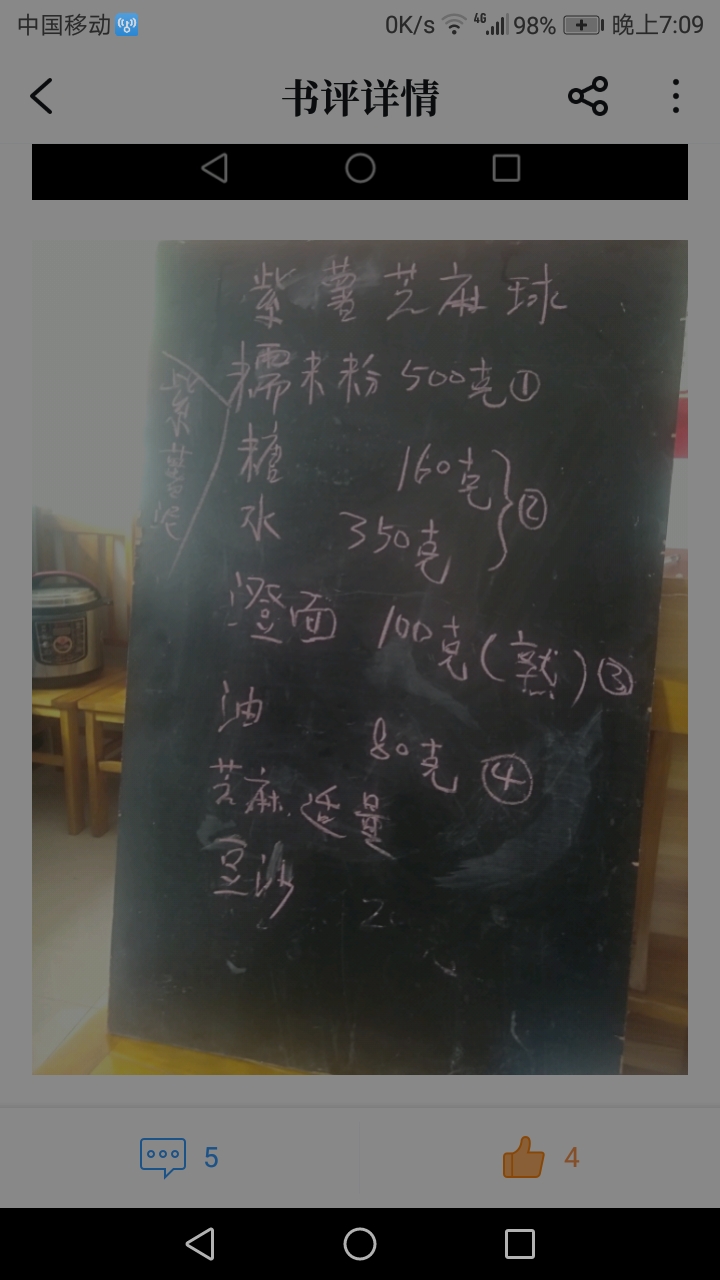 中国移动 0K/s 4G 98% 晚上7:09
书评详情
紫薯芝麻球
糯米粉 500克①
紫薯泥
糖 160克
水 350克 ②
澄面 100克(熟)③
油 80克 ④
芝麻 适量
豆沙
5 4